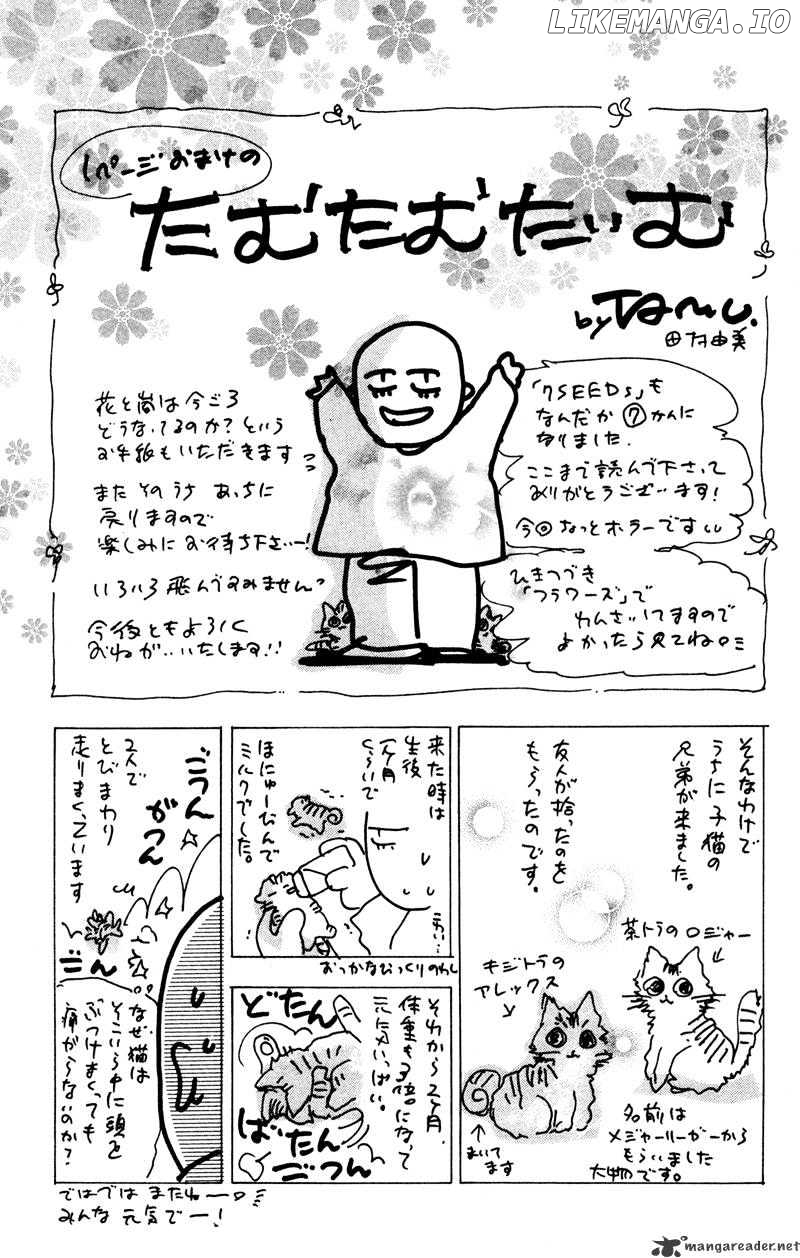 LIKEMANGA.IO
1ページおまけの
たむたむたいむ
by Tamu.
田村由美
「7SEEDS」も
なんだか⑦かんに
なりました
ここまで読んで下さって
ありがとうございます!
今回なっとホラーです
ひきつづき
「フラワーズ」で
れんさいしてますので
よかったら見てね
花と嵐は今ごろ
どうなってるのか?という
お手紙もいただきます
またそのうち あっちに
戻りますので
楽しみにお待ち下さいー!
いろいろ飛んですみません
今後ともよろしく
おねがいいたします!!
そんなわけで
うちに子猫の
兄弟が来ました。
友人が拾ったのを
もらったのです。
茶トラのロジャー
キジトラの
アレックス
まいて
ます
名前は
メジャーリーガーから
もらいました
大物です。
来た時は
生後
1ヶ月
くらいで
ほにゅーびんで
ミルクでした。
おっかなびっくりのわし
それから2ヶ月、
体重も3倍になって
元気いっぱい。
どたん
ばたん
ごつん
2人で
とびまわり
走りまくっています
ごうん
がつん
ごん
なぜ猫は
そこいら中に頭を
ぶつけまくっても
痛がらないのか?
ではでは またねー
みんな 元気でー!
mangareader.net